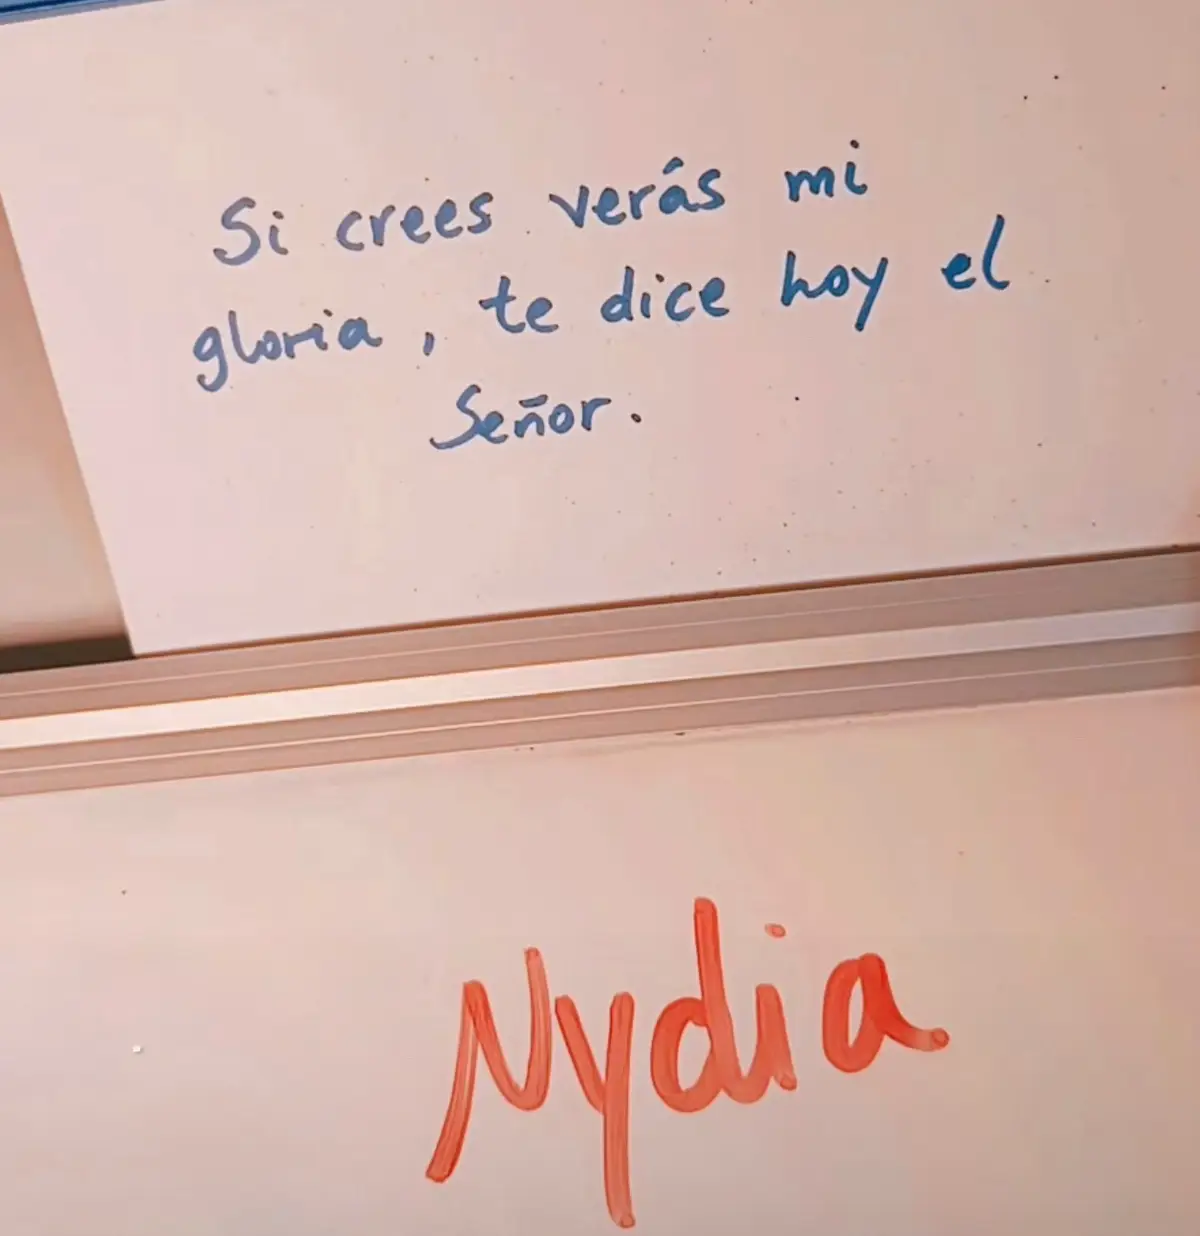 Si crees verás mi
gloria, te dice hoy el
Señor.
Nydia